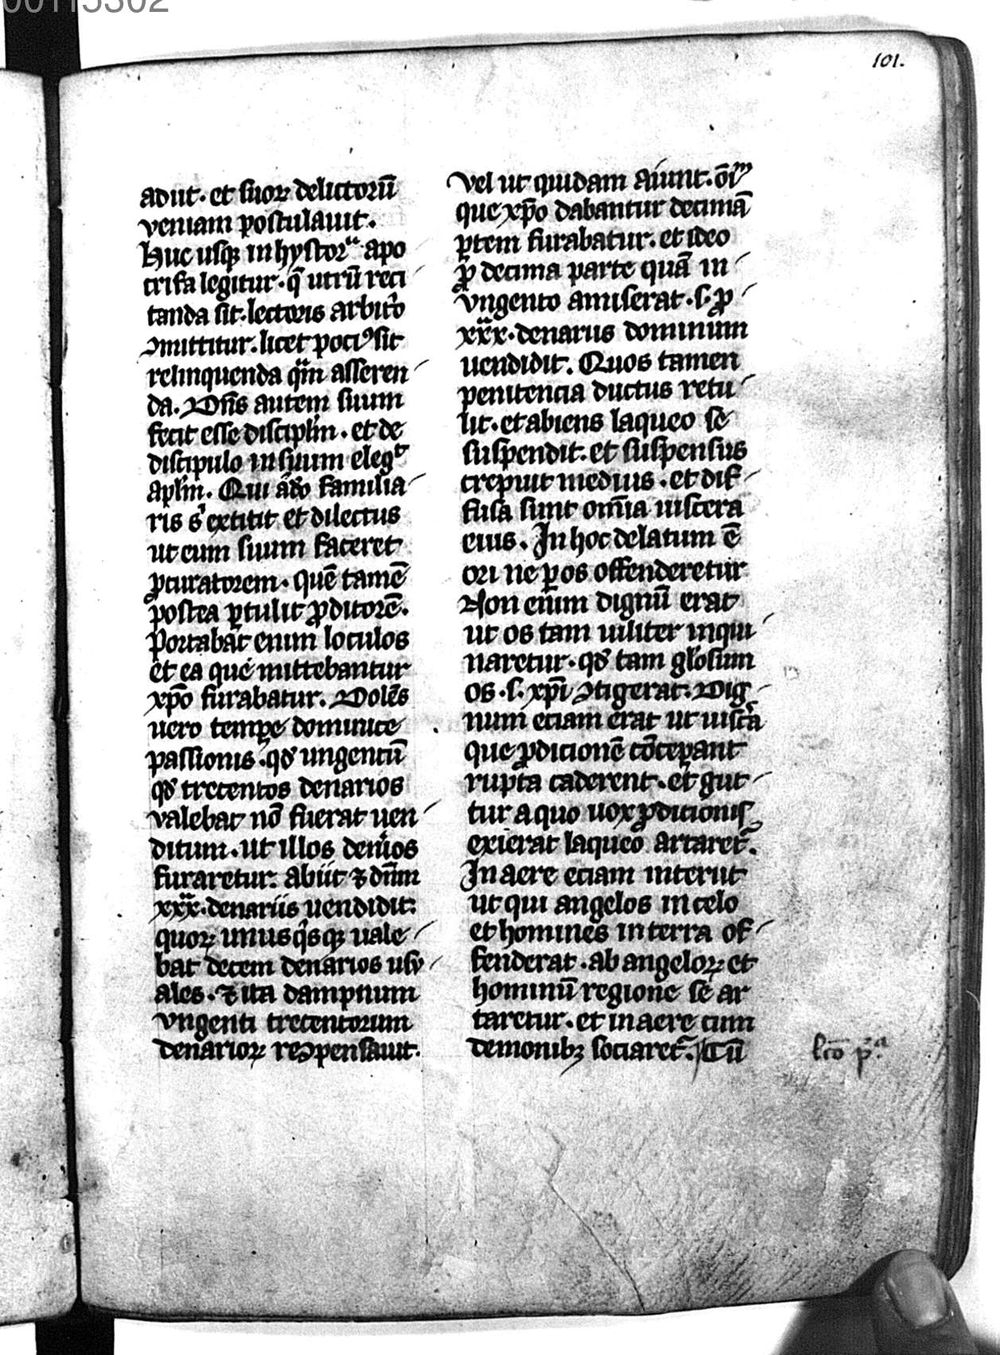 00115302
101.
adiit. et suoꝝ delictoꝝū
veniam postulauit.
Huc usqꝫ in hystorᵃ apo
crifa legitur. q̄ utrū reci
tanda sit. lectoris arbitͥo
ꝯmittitur. licet pociꝰ sit
relinquenda qͣm asseren
da. Dn̄s autem suum
fecit esse discipl̄m. et de
discipulo in suum elegͭ
apl̄m. Qui ādeo familia
ris sͥ extitit et dilectus
ut eum suum faceret
ꝓcuratorem. quē tamē
postea ꝑtulit ꝓditorē.
Portabat enim loculos
et ea que mittebantur
xp̄o furabatur. Dolēs
uero tempe dominice
passionis. qd̓ ungentū
qd̓ trecentos denarios
valebat nō fuerat uen
ditum. ut illos denͥos
furaretur. abiit ⁊ dn̄m
xxx. denariis uendidit.
quoꝝ unus qͥsqꝫ uale
bat decem denarios usu
ales. ⁊ ita dampnum
vngenti trecentorum
denarioꝝ reꝯpensauit.
Vel ut quidam aiunt. oīm
que xp̄o dabantur decimā
ꝑtem furabatur. et ideo
ꝓ decima parte quā in
vngento amiserat. s. ꝓ
xxx. denariis dominum
uendidit. Quos tamen
penitencia ductus retu
lit. et abiens laqueo se
suspendit. et suspensus
crepuit medius. et dif
fusa sunt omīa uiscera
eius. In hoc delatum ē
ori ne ꝑ os offenderetur
Non enim dignū erat
ut os tam uiliter inqui
naretur. qd̓ tam gl̓osum
os. s. xp̄i ꝯtigerat. Dig
num eciam erat ut uiscͣa
que ꝓdicionē cōceꝑant
rupta caderent. et gut
tur a quo uox ꝓdicionis
exierat laqueo artaretͬ.
In aere eciam interiit
ut qui angelos in celo
et homines in terra of
fenderat. ab angeloꝝ et
hominū regione se ar
taretur. et in aere cum
demonibꝫ sociaretͬ. Cū
lc̄o pͥᵃ